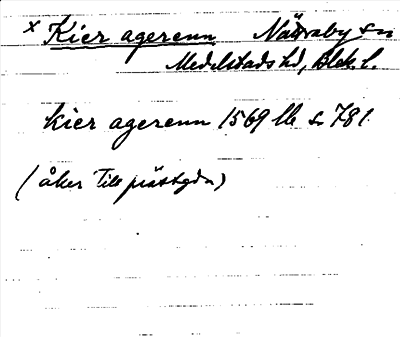 x Kier agerenn Nättraby sn
Medelstads hd, Blek. l.
kier agerenn 1569 lk s. 781
(åker till prästgdn)